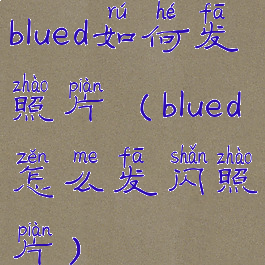 rú hé fā
blued如何发
zhào piàn
照片（blued
zěn me fā shǎn zhào
怎么发闪照
piàn
片）